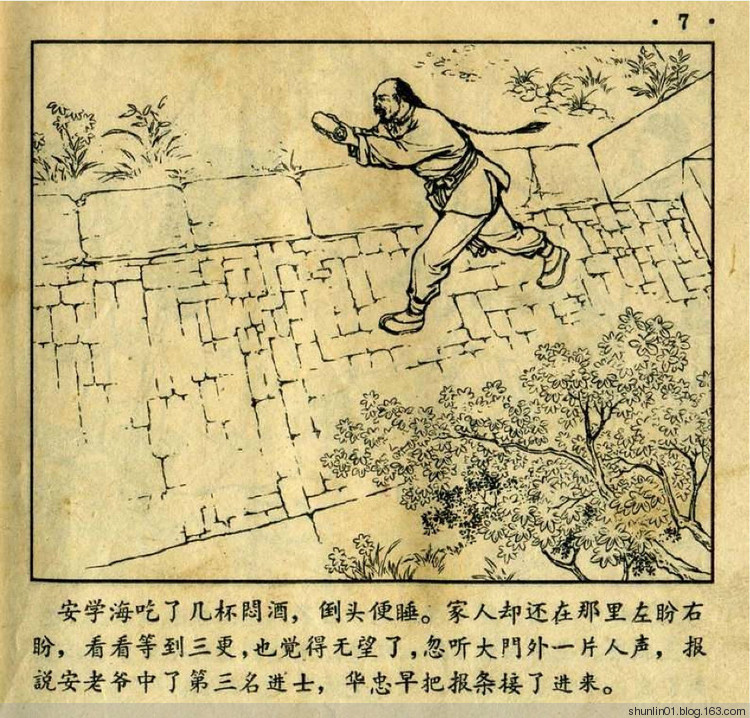 · 7 ·
安学海吃了几杯悶酒，倒头便睡。家人却还在那里左盼右
盼，看看等到三更，也覚得无望了，忽听大門外一片人声，报
説安老爷中了第三名进士，华忠早把报条接了进来。
shunlin01.blog.163.com